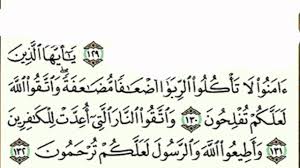 ﴿١٢٩﴾ يَٰٓأَيُّهَا ٱلَّذِينَ
ءَامَنُوا۟ لَا تَأْكُلُوا۟ ٱلرِّبَوٰٓا۟ أَضْعَٰفًا مُّضَٰعَفَةً ۖ وَٱتَّقُوا۟ ٱللَّهَ
لَعَلَّكُمْ تُفْلِحُونَ ﴿١٣٠﴾ وَٱتَّقُوا۟ ٱلنَّارَ ٱلَّتِىٓ أُعِدَّتْ لِلْكَٰفِرِينَ
﴿١٣١﴾ وَأَطِيعُوا۟ ٱللَّهَ وَٱلرَّسُولَ لَعَلَّكُمْ تُرْحَمُونَ ﴿١٣٢﴾